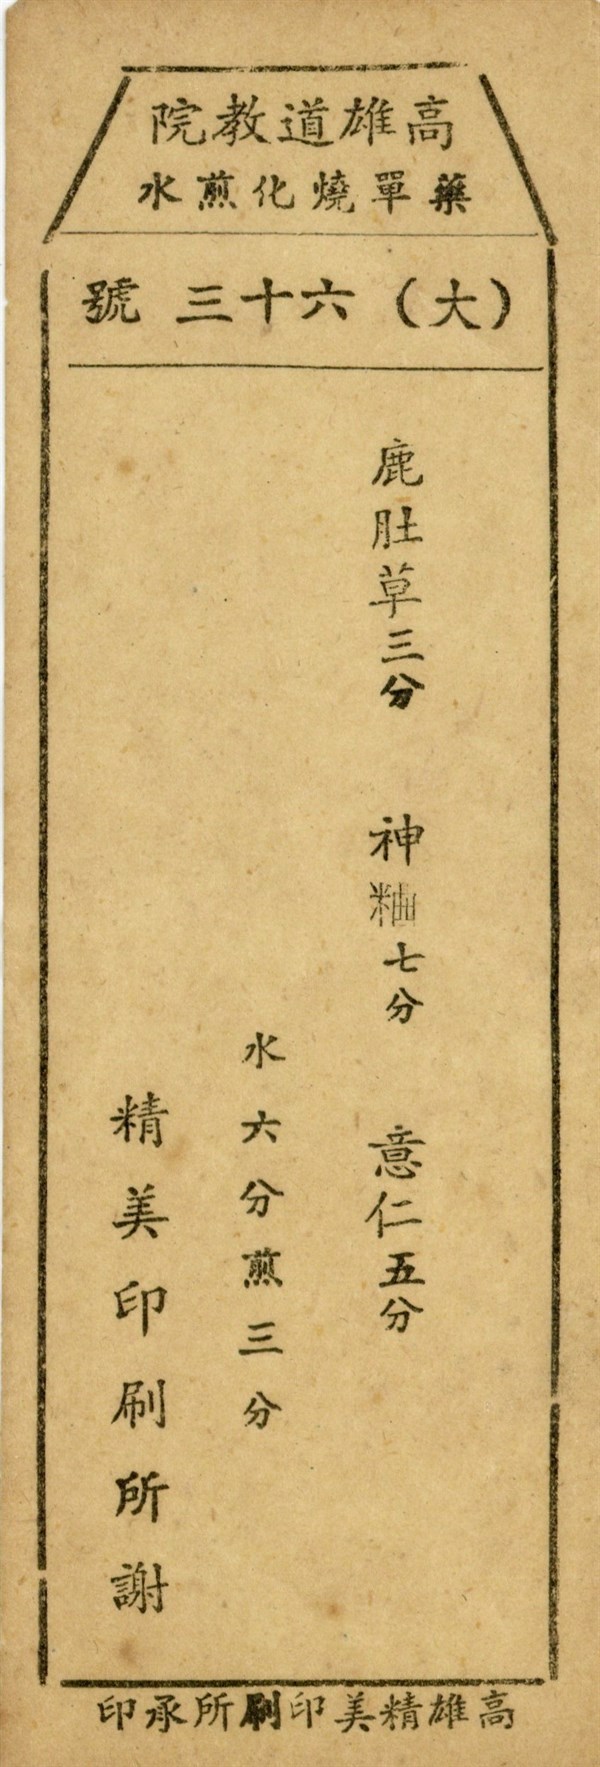 高雄道教院
藥單燒化煎水
(大)六十三號
鹿肚草三分 神粬七分 意仁五分
水六分煎三分
精美印刷所謝
高雄精美印刷所承印